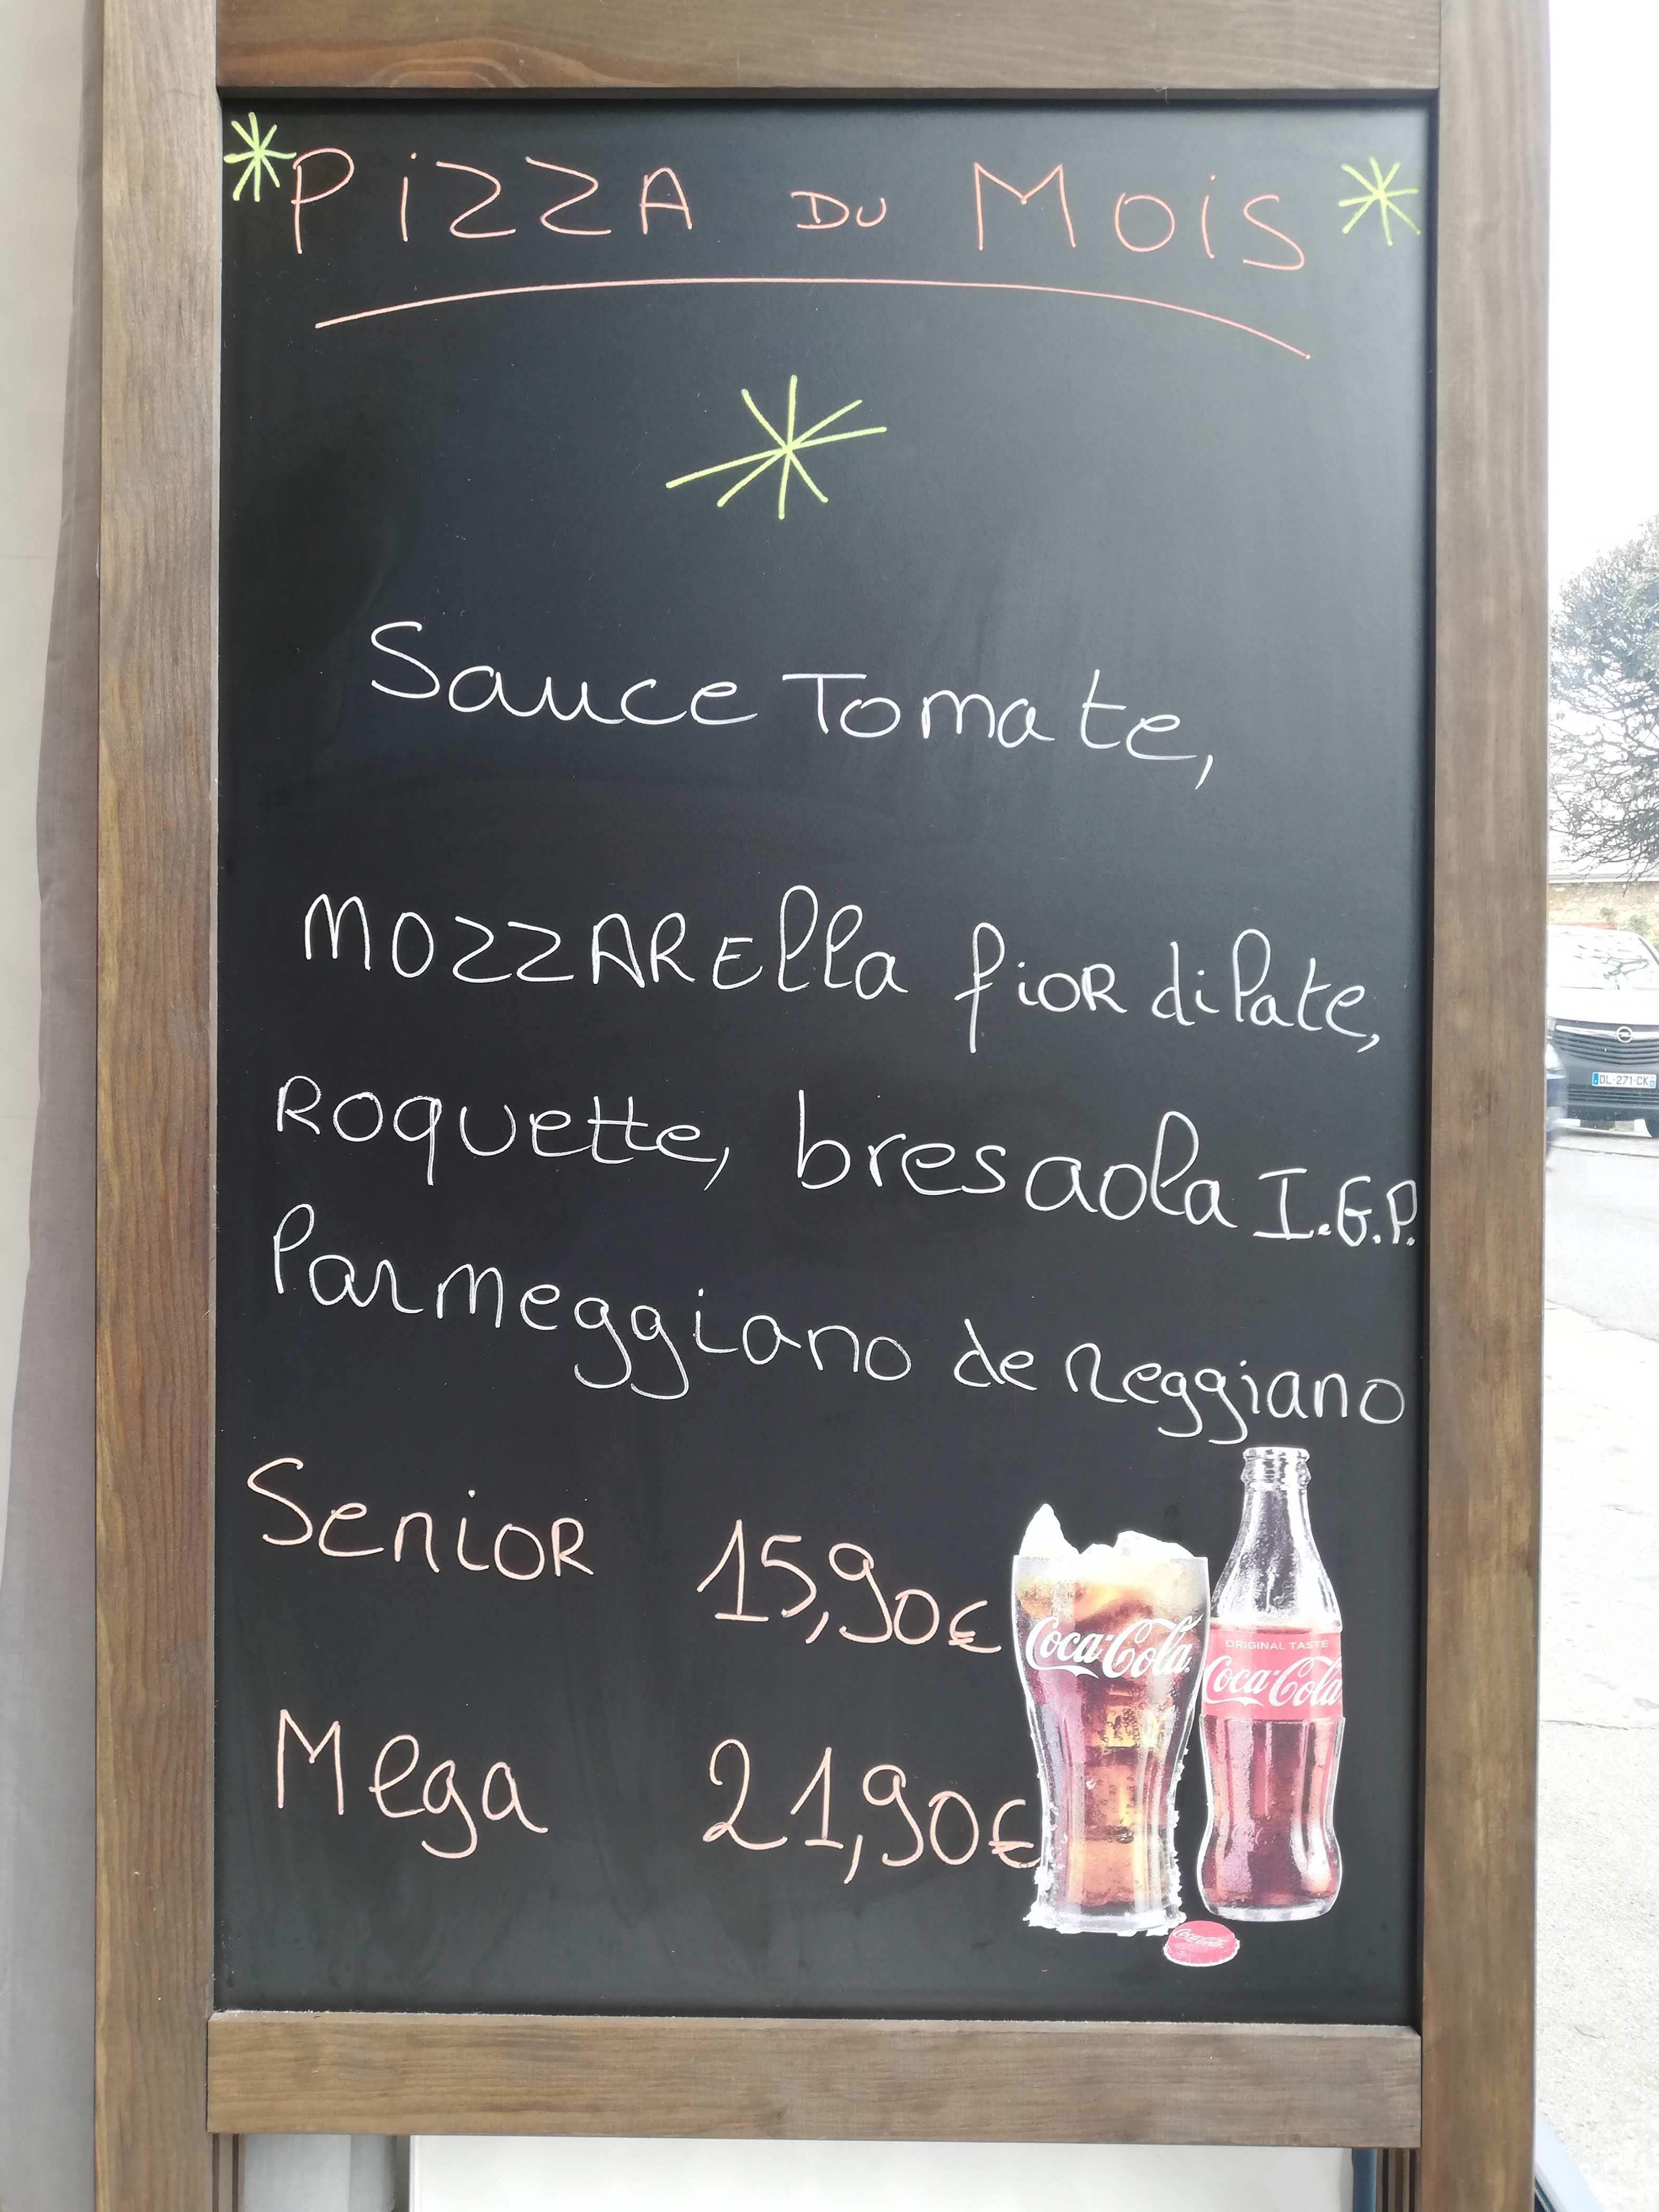 PiZZA DU MOiS
Sauce Tomate,
MOZZARElla fiOR di late,
ROquette, bresaola I.G.P.
Parmeggiano de Reggiano
SeniOR 15,90€
Mega 21,90€
Coca-Cola
ORIGINAL TASTE
Coca-Cola
Coca-Cola
DL-271-CK